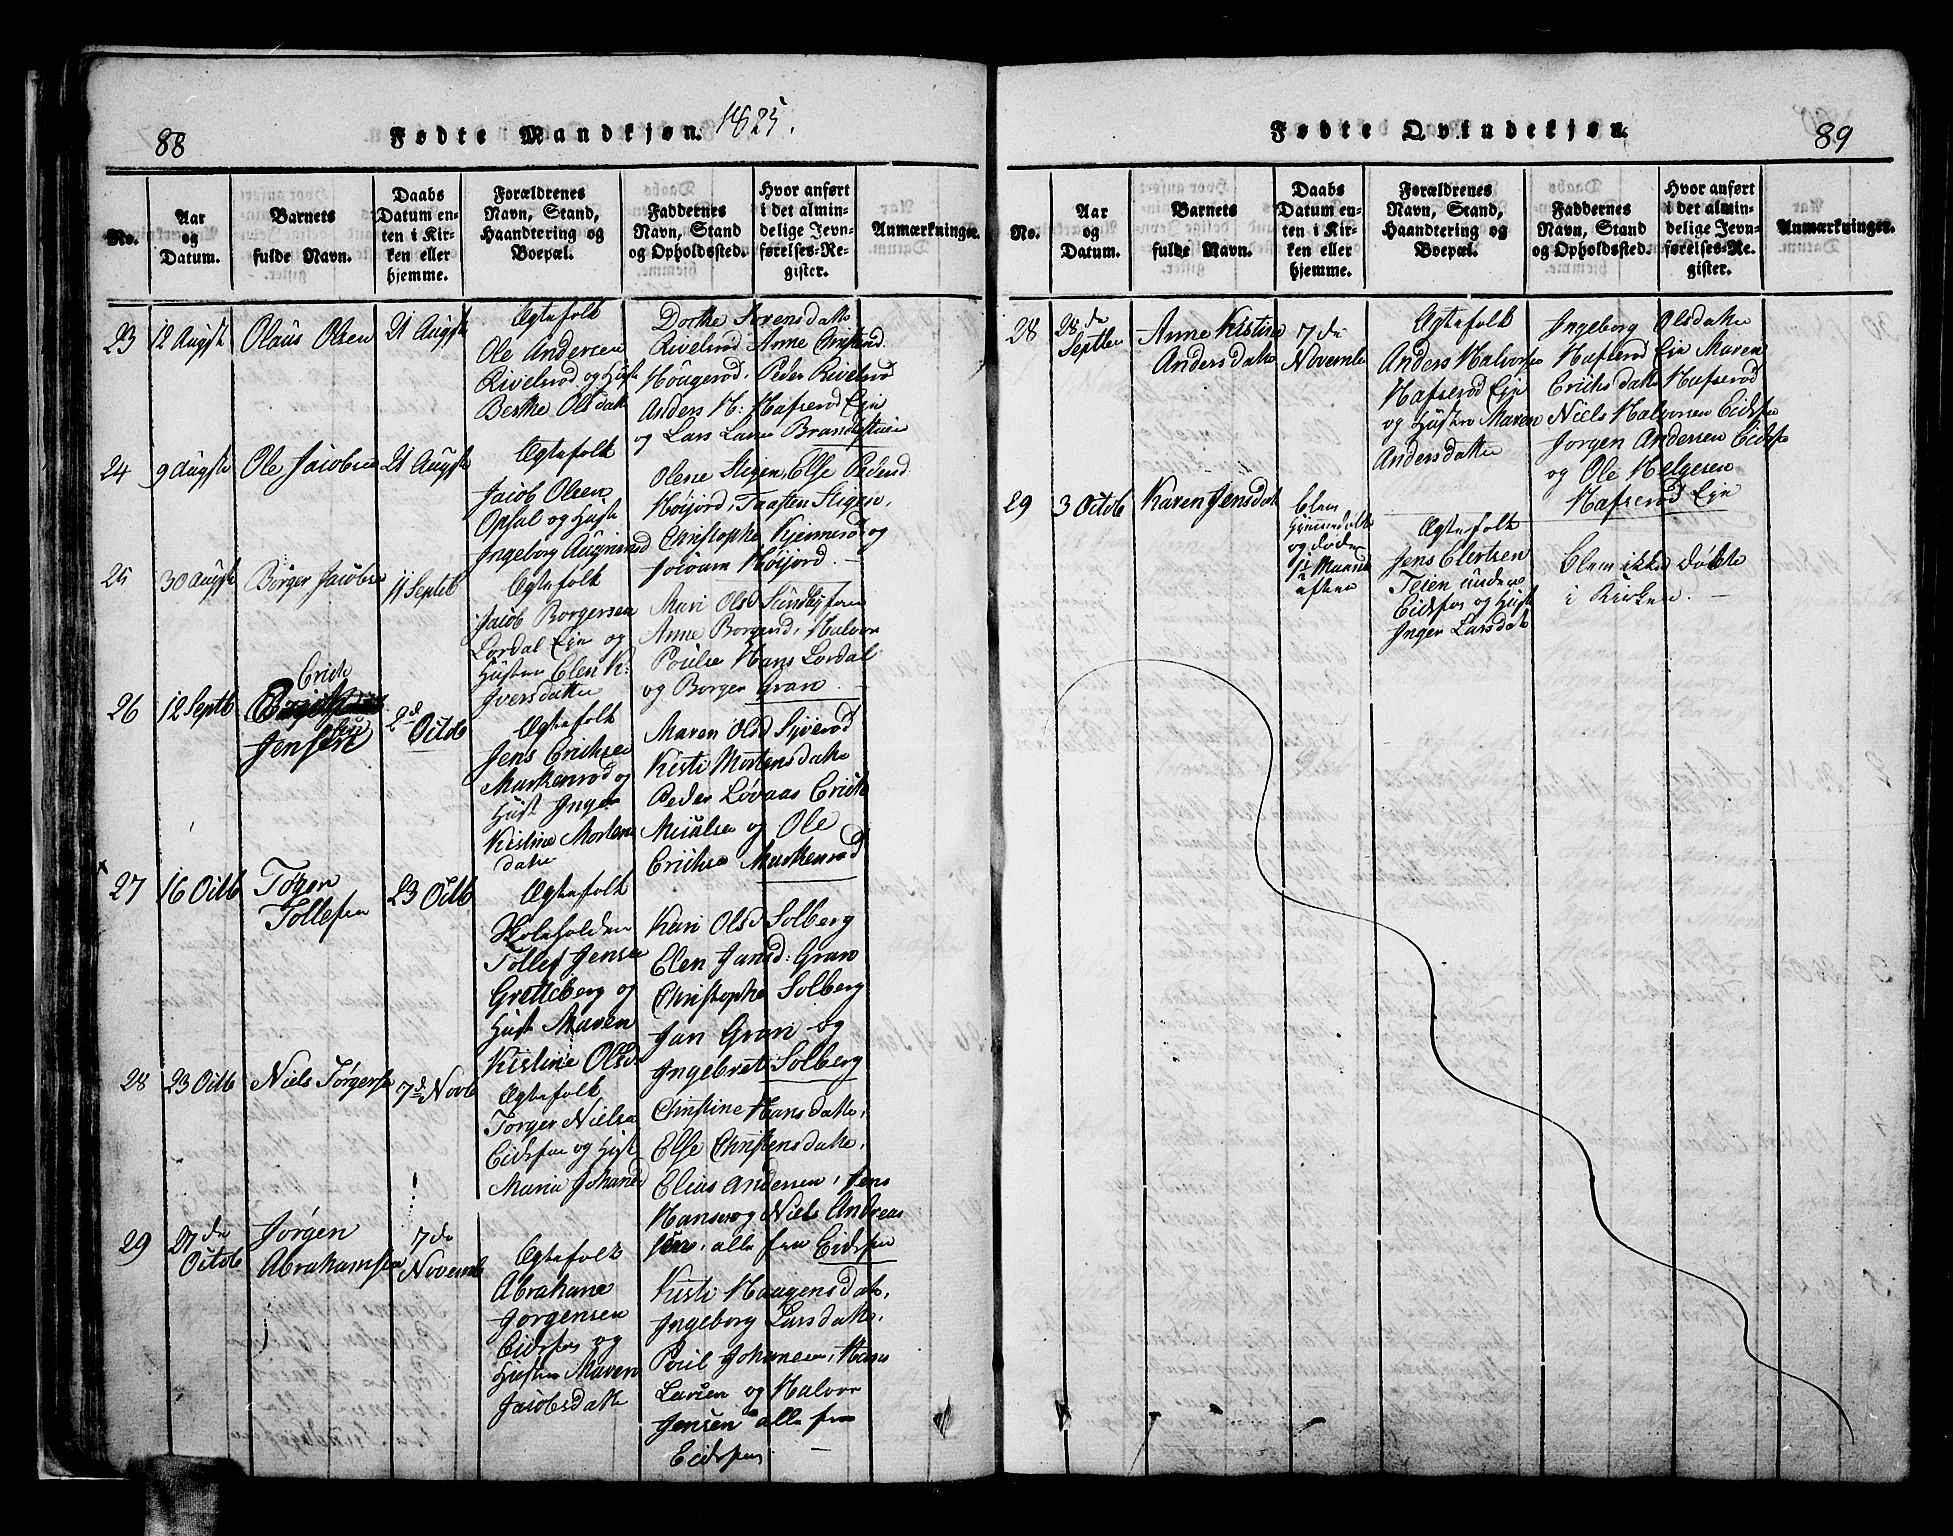 88
Fødte Mandkjøn. 1825.
No.
Aar
og
Datum.
Barnets
fulde Navn.
Daabs
Datum en-
ten i Kir-
ken eller
hjemme.
Forældrenes
Navn, Stand,
Haandtering og
Boepæl.
Faddernes
Navn, Stand
og Opholdssted.
Hvor anført
i det almin-
delige Jevn-
førelses-Re-
gister.
Anmærkninger.
23
12 Augst
Olaus Olsen
21 Augst
Ægtefolk
Ole Andersen
Rivelsrød og Hust
Berthe Olsdatt
Dorthe Sørensdatte
Rivelsrød, Anne Christensd
Hougerød, Peder Rivelsrød
Anders H: Hafserød Eje
og Lars Larsen Brandstuen
24
9 Augst
Ole Jacobsen
21 Augst
Ægtefolk
Jacob Olsen
Opsal og Hust
Ingeborg
Olene Stigen, Else Pedersd
Høijord, Taasten Stigen,
Christopher Kjennerød og
Høijord.
25
30 Augst
Børger Jacobsen
11 Septb
Ægtefolk
Jacob Borgersen
Lørdal Eje og
Hustru Elen K:
Iversdatter
Mari Olsd Sundbyfoss
Anne Borgersd, Halvor
Poulse Hans Lørdal
og Borger Gran.
26
12 Septb
Erich
Jensen
2d Octob
Ægtefolk
Jens Erichsen
Markenrød og
Hust Inger
Kistine Mortens
datter
Maren Olsd Syverød
Kisti Mortensdatte
Peder Løvaas Erich
og Ole
Erichse Markenrød
27
16 Octb
Tørger
Tollefsen
23 Octb
Ægtefolk
Skoleholder
Tollef Jensen
Gretteberg og
Hust Maren
Kistine Olsd
Kari Olsd Solberg
Elen Jansd: Gran
Christopher Solberg
Jan Gran og
Ingebret Solberg
28
23 Octb
Niels Tørgersen
7d Novb
Ægtefolk
Torger Nielsen
Eidsfos og Hust
Maria Johansd
Christine Hansdatte,
Else Christensdatte,
Elias Andersen, Jens
Hansen og Niels Andreas
sen, alle fra Eidsfos
29
27 de
Octob
Jørgen
Abrahamsen
7 de
Novemb
Ægtefolk
Abraham
Jørgensen
Eidsfos og
Hustru Maren
Jacobsdatte
Kisti Haagensdatte,
Ingeborg Larsdatte,
Poul Johansen, Hans
Larsen og Halvor
Jensen alle fra
Eidsfos
89
Fødte Qvindekjøn.
No.
Aar
og
Datum.
Barnets
fulde Navn.
Daabs
Datum en-
ten i Kir-
ken eller
hjemme.
Forældrenes
Navn, Stand,
Haandtering og
Boepæl.
Faddernes
Navn, Stand
og Opholdssted.
Hvor anført
i det almin-
delige Jevn-
førelses-Re-
gister.
Anmærkninger.
28
28 de
Septbr
Anne Kistine
Andersdatte
7 de
Novemb
Ægtefolk
Anders Halvorsen
Hafserød Eje
og Hustru Maren
Andersdatter
Ingeborg Olsdatter
Hafserød Eje Maren
Erichsdatte Hafserød
Niels Halvorsen Eidsfos
Jørgen Andersen Eidsfos
og Ole Helgesen
Hafserød Eje
29
3 Octob
Karen Jensdatt
Blev
hjemmedøbt
og døde
1/2 Maaned
efter
Ægtefolk
Jens Elertsen
Teien under
Eidsfos og Hust
Inger Larsdatte
Blev ikke døbte
i Kirken.